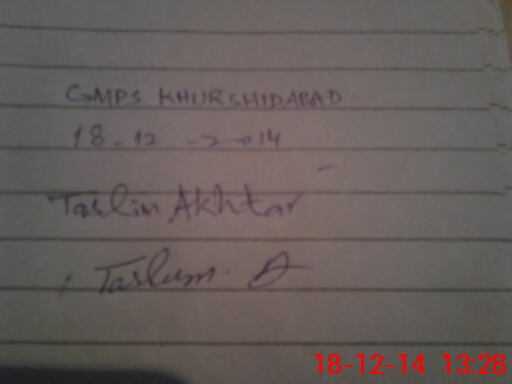 GMPS KHURSHIDABAD
18-12-2014
Taslim Akhtar
Taslum. A
18-12-14 13:28